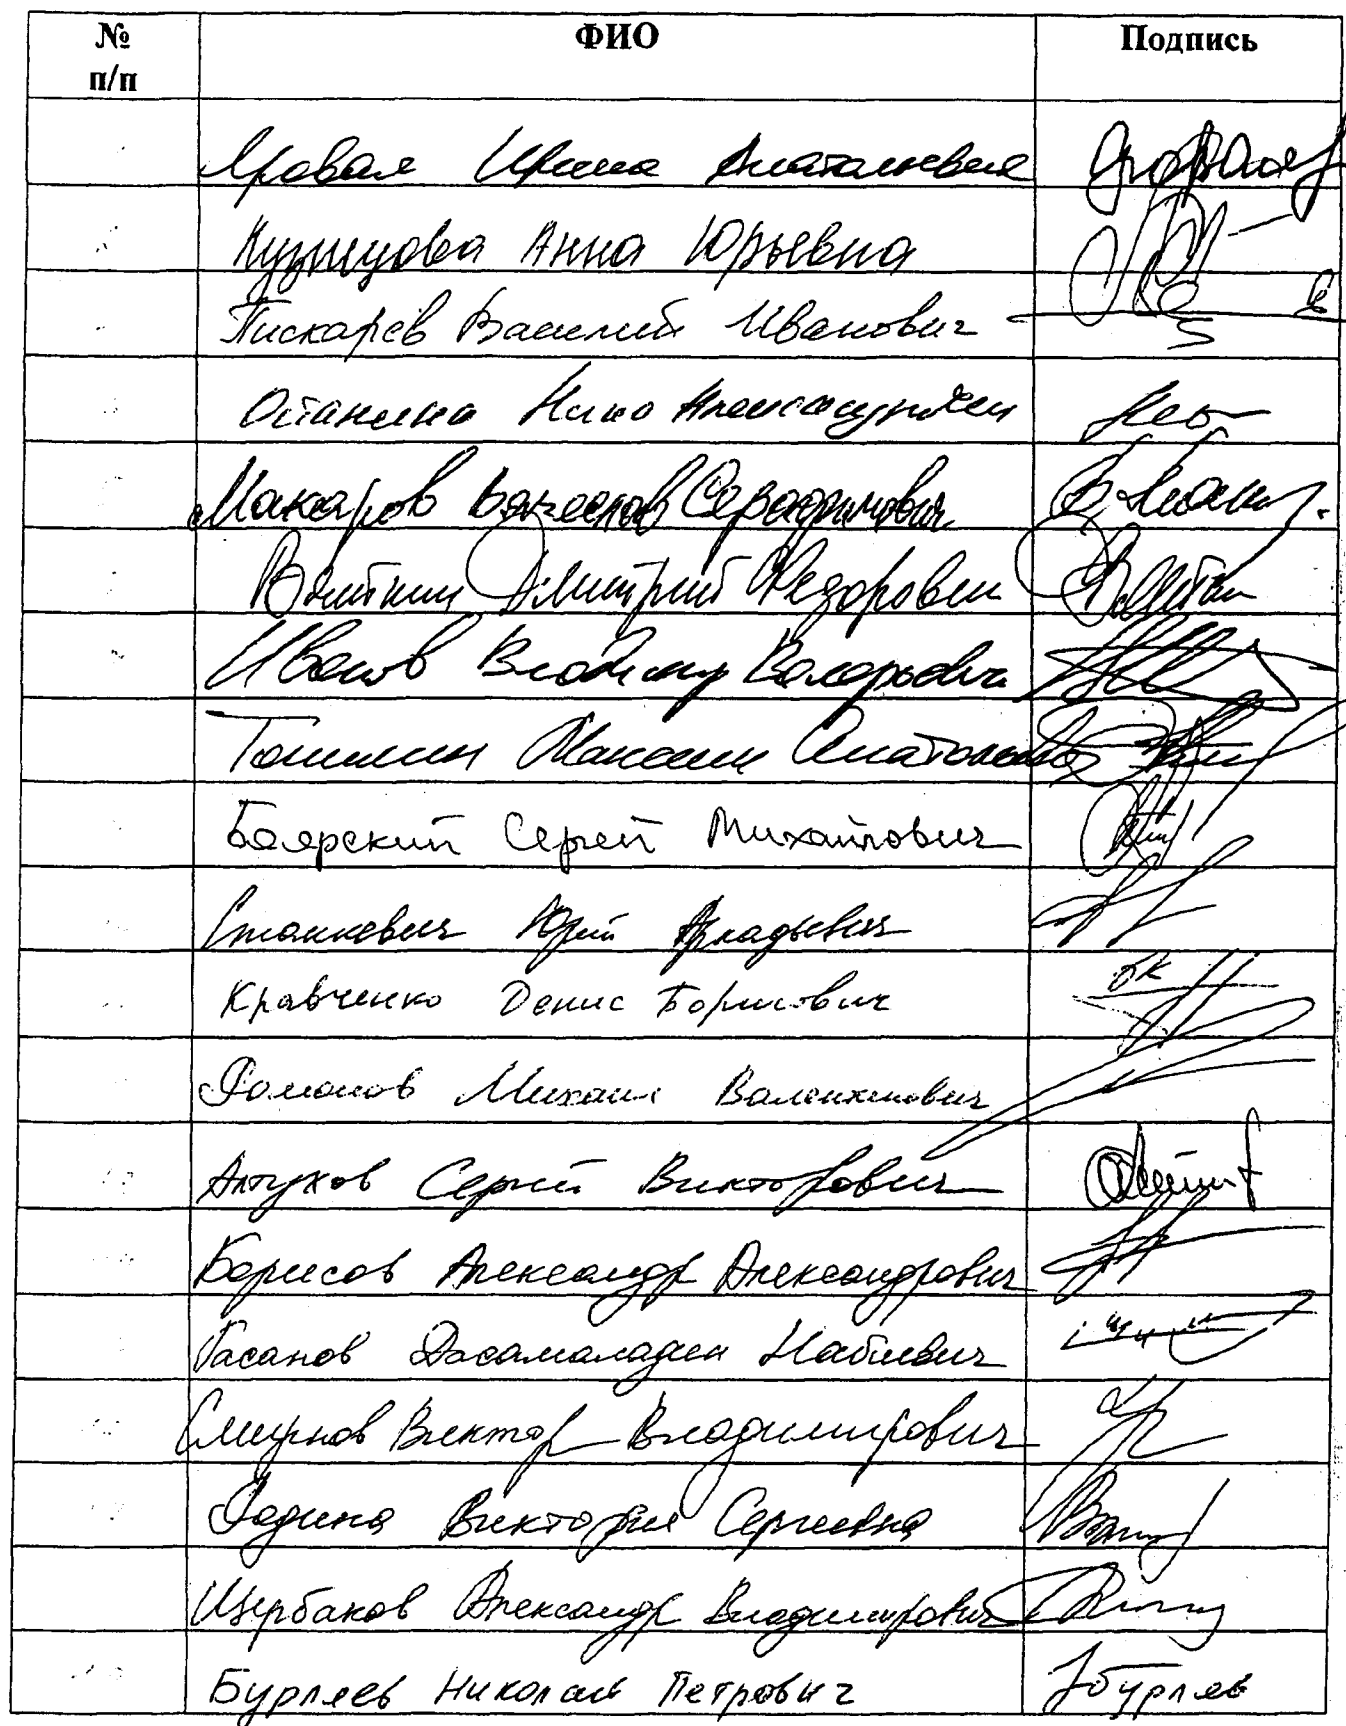 № п/п ФИО Подпись
Яровая Ирина Анатольевна
Кузнецова Анна Юрьевна
Пискарев Василий Иванович
Останина Нина Александровна
Макаров Вячеслав Серафимович
Вяткин Дмитрий Федорович
Иванов Владимир Валерьевич
Топилин Максим Анатольевич
Боярский Сергей Михайлович
Станкевич Юрий Аркадьевич
Кравченко Денис Борисович
Романов Михаил Валентинович
Алтухов Сергей Викторович
Борисов Александр Александрович
Гасанов Джамаладин Набиевич
Смирнов Виктор Владимирович
Родина Виктория Сергеевна
Щербаков Александр Владимирович
Бурляев Николай Петрович Бурляев